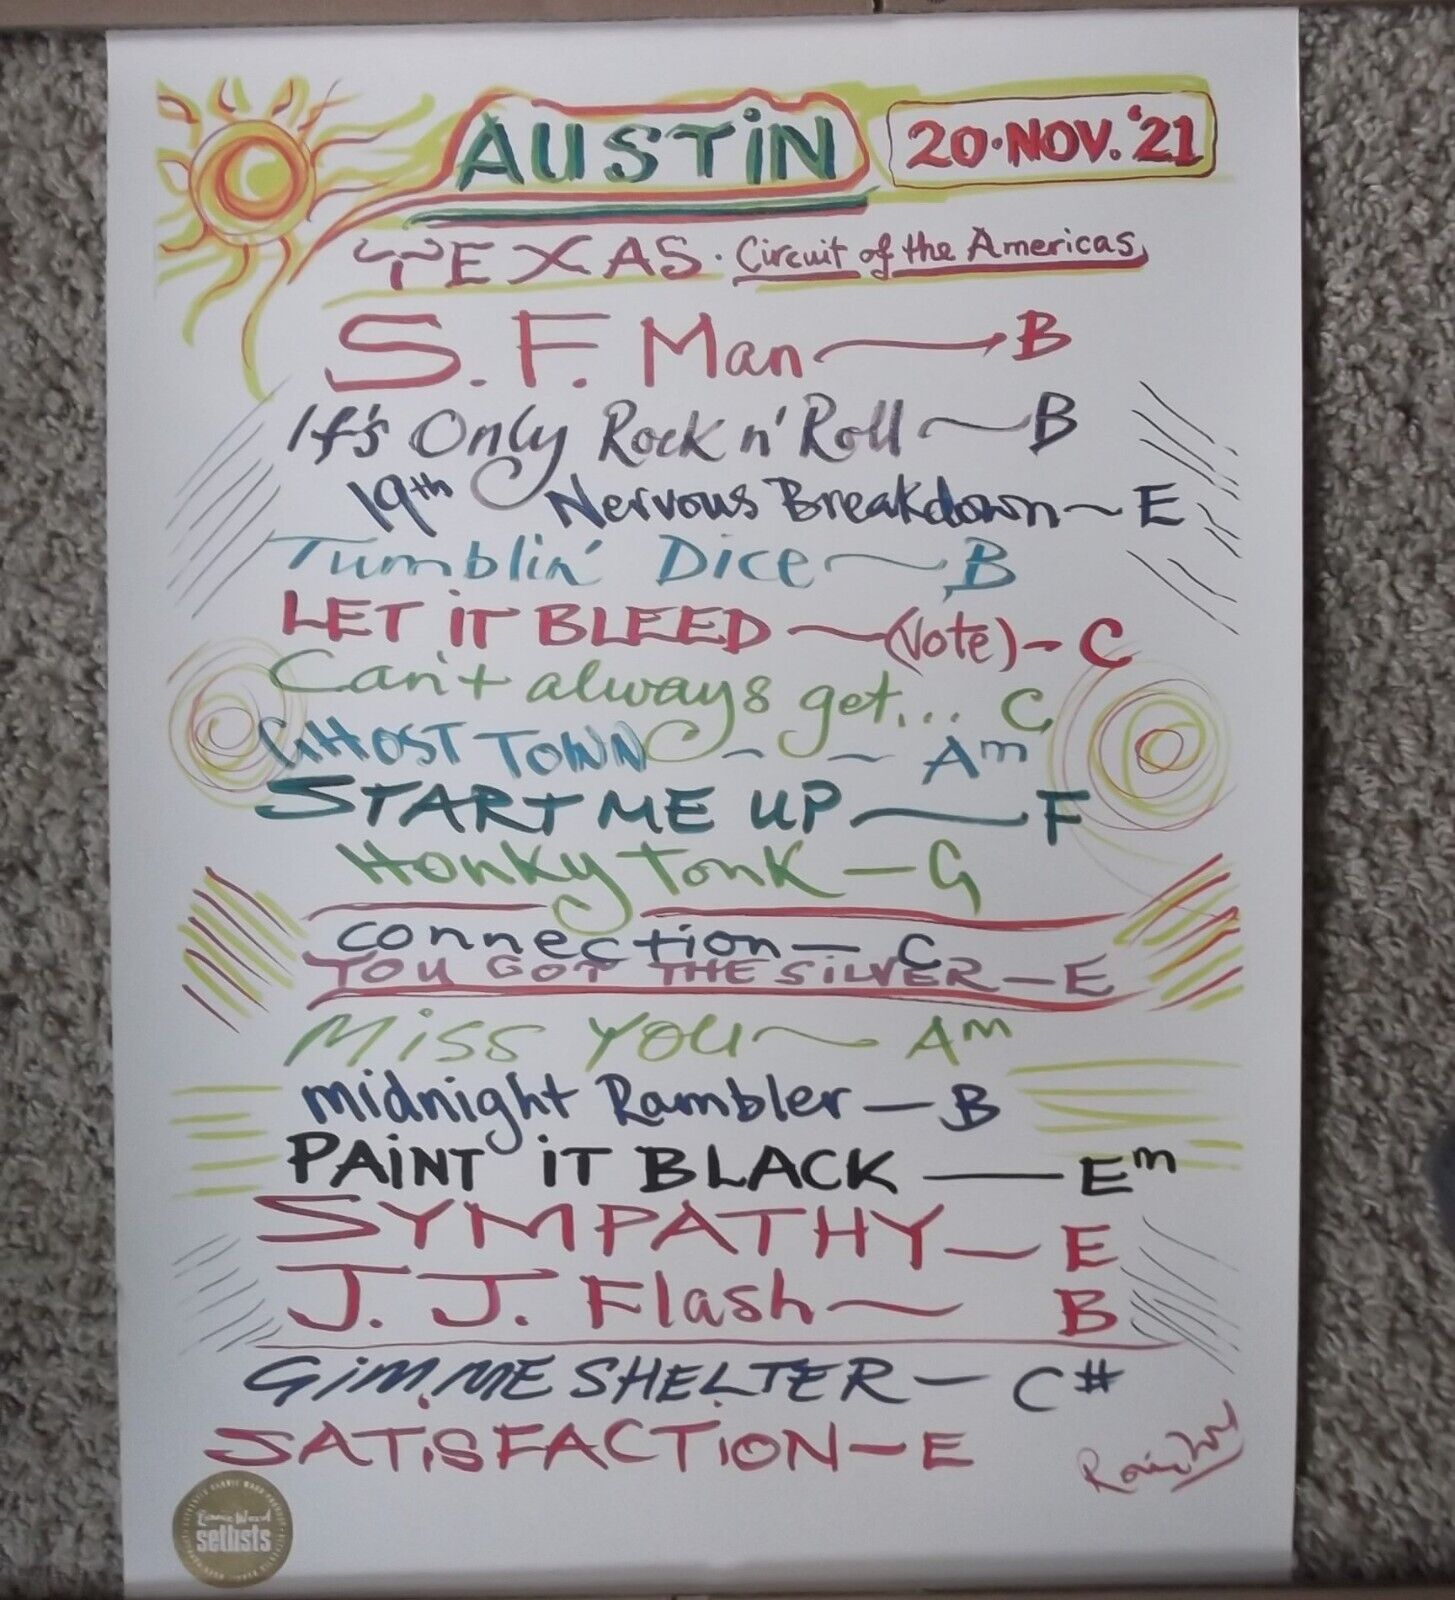 AUSTIN 20·NOV.'21
TEXAS · Circuit of the Americas
S. F. Man B
It's Only Rock n' Roll B
19th Nervous Breakdown E
Tumblin' Dice B
LET IT BLEED (Vote) - C
Can't always get... C
GHOST TOWN - - Am
START ME UP F
Honky Tonk - G
Connection - C
YOU GOT THE SILVER - E
Miss You Am
Midnight Rambler - B
PAINT IT BLACK - Em
SYMPATHY - E
J. J. Flash B
GIMME SHELTER - C#
SATISFACTION - E
Ronnie Wood
setlists